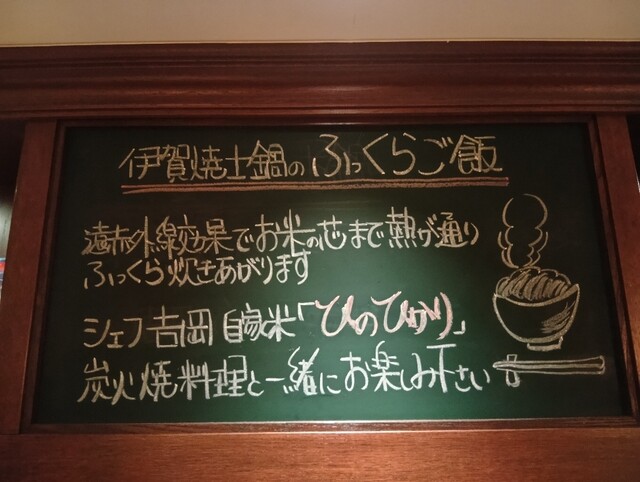 伊賀焼土鍋のふっくらご飯
遠赤外線効果でお米の芯まで熱が通り
ふっくら炊きあがります
シェフ吉岡自家米「ひのひかり」
炭火焼料理と一緒にお楽しみ下さい